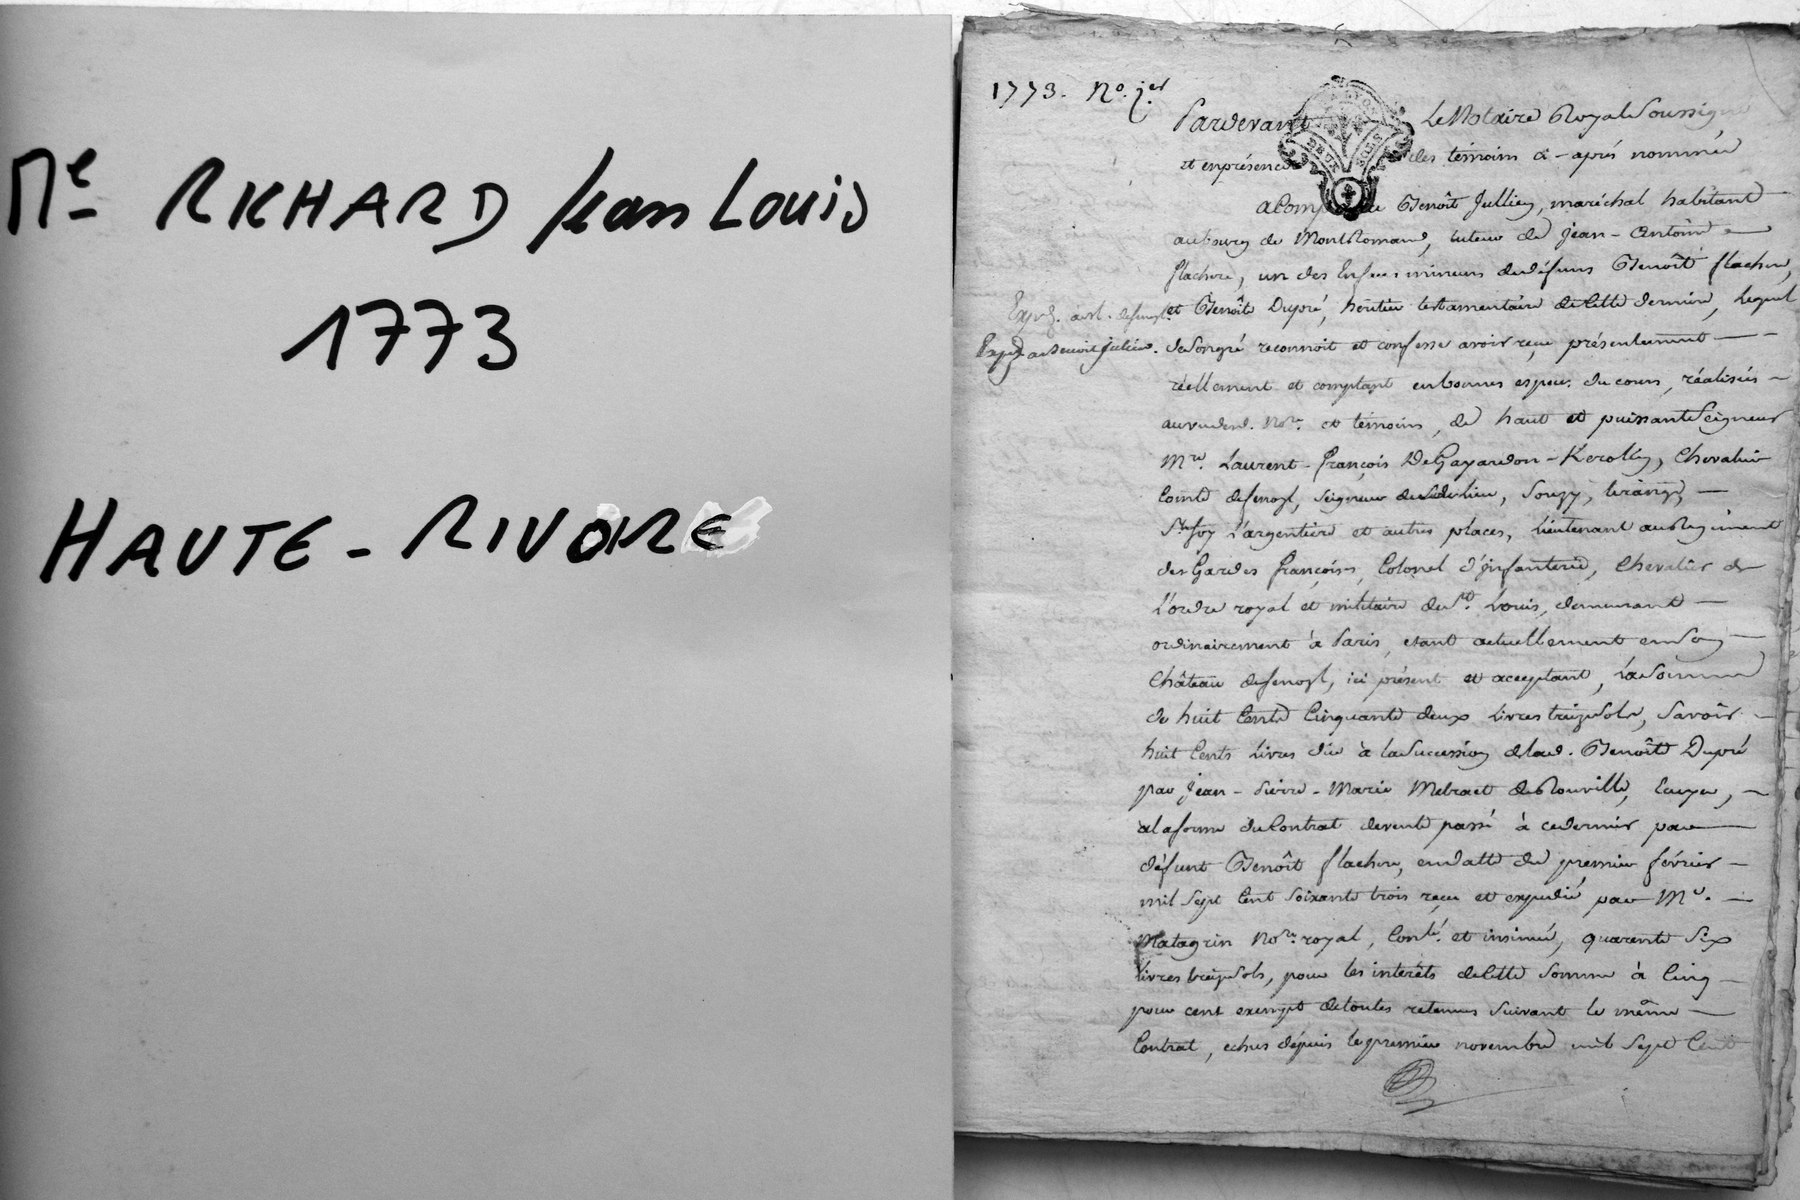 Me RICHARD Jean Louis
1773
HAUTE-RIVOIRE
1773. No. 1er
Pardevant Le Notaire Royal Soussigné
et en présence des témoins ci-aprés nommés
a Comparu Benoît Jullien, maréchal habitant
au bourg de MontRomand, tuteur de Jean-Antoine
flachere, un des Enfans mineurs de défuns Benoît flachere,
et Benoîte Dupré, héritier testamentaire de Cette derniere, Lequel
de Son gré reconnoit et confesse avoir reçu présentement
réellement et comptant en bonnes espces. du cours, réalisées
au vu dud. Nore. et témoins, de haut et puissant Seigneur
Mre. Laurent-françois De Gayardon-
Chevalier
Comte de fenoyl, Seigneur de Souzy,
Ste foy l'argentiere et autres places, Lieutenant au Regiment
des Gardes françoises, Colonel d'jnfanterie, Chevalier de
L'ordre royal et militaire de St. Louis, demeurant
ordinairement à Paris, etant actuellement en Son
Château de fenoyl, ici présent et acceptant, La Somme
de huit Cents Cinquante deux Livres treize Sols, Savoir
huit Cents Livres dûe à la Succession de lad. Benoîte Dupré
par Jean-Pierre-Marie de Rouville, Ecuyer,
a la forme du Contrat de vente passé à ce dernier par
défunt Benoît flachere, en datte du premier février
mil Sept Cent Soixante trois reçu et expedié par Me.
Matagrin Nore. royal, Conlé. et insinué, quarente Six
Livres treize Sols, pour les interêts de Cette Somme à Cinq
pour cent exempt de toutes retenues Suivant le même
Contrat, echus dépuis le premier novembre mil Sept Cent
Exped. a Benoit Julien.